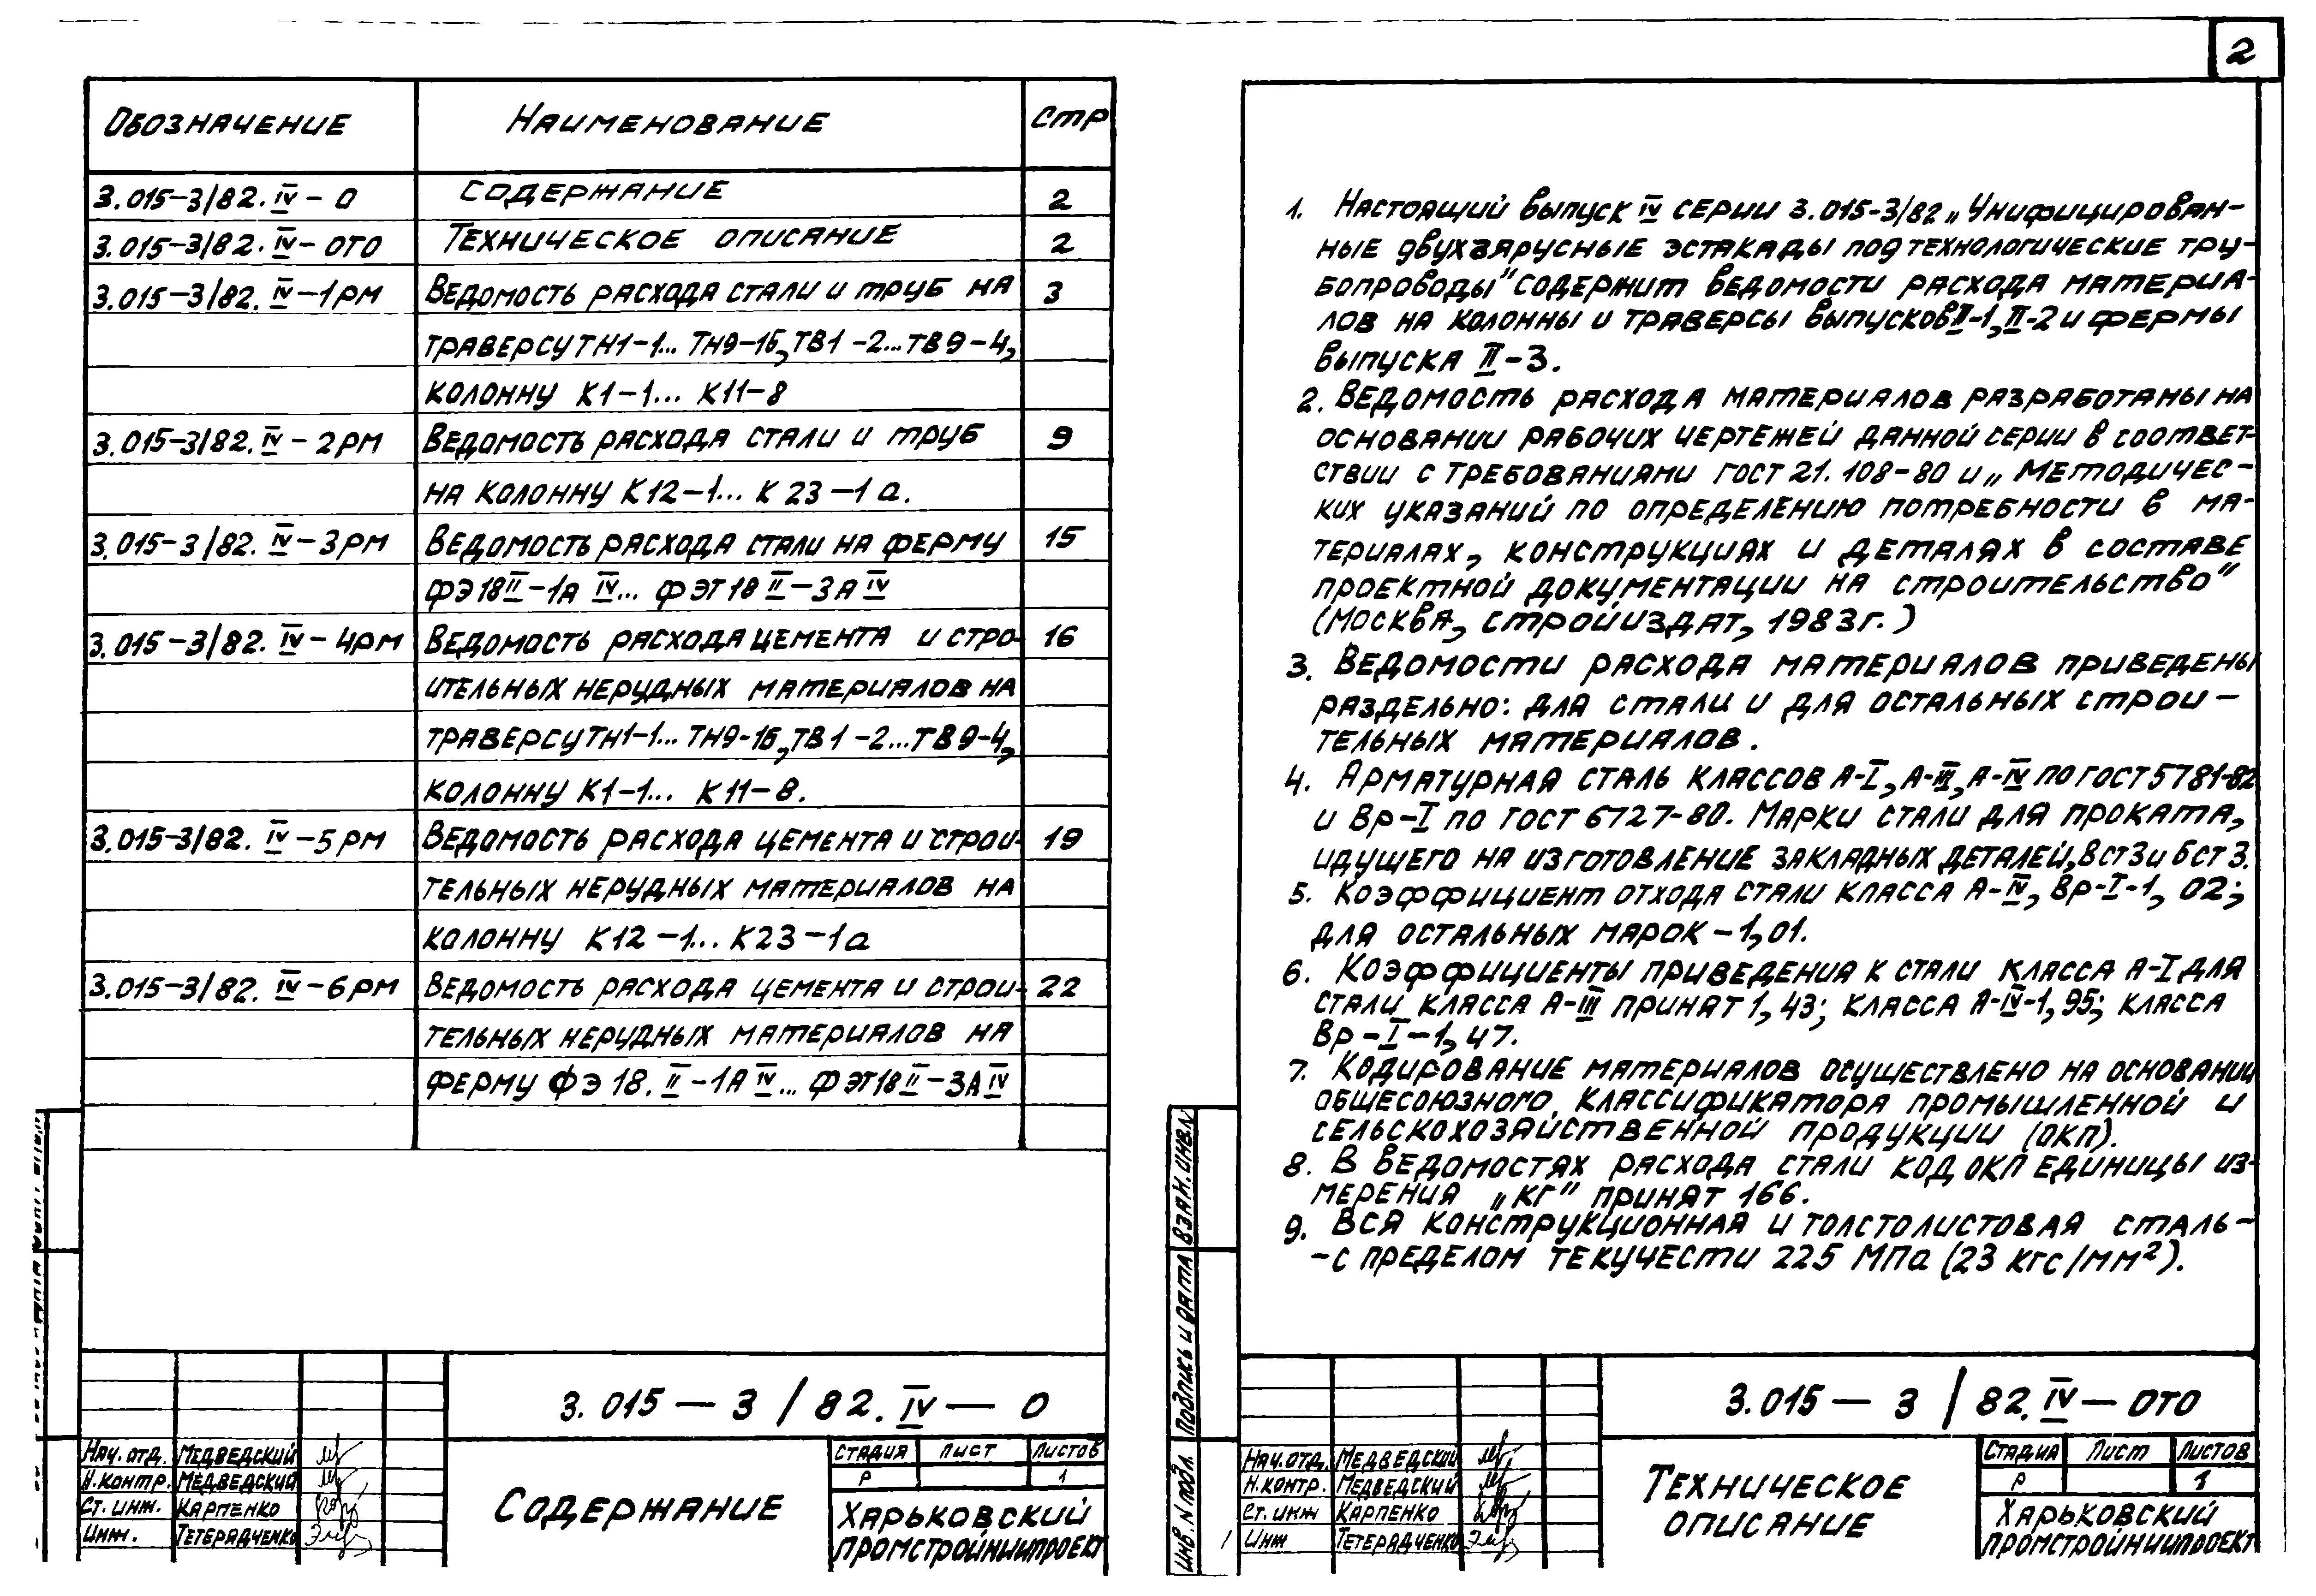 2
Обозначение Наименование Стр
3.015-3/82. IV - 0 Содержание 2
3.015-3/82. IV - ОТО Техническое описание 2
3.015-3/82. IV - 1РМ Ведомость расхода стали и труб на 3
траверсу ТН1-1... ТН9-1б, ТВ1-2...ТВ9-4,
колонну К1-1... К11-8
3.015-3/82. IV - 2РМ Ведомость расхода стали и труб 9
на колонну К12-1... К23-1а.
3.015-3/82. IV - 3РМ Ведомость расхода стали на ферму 15
ФЭ18II-1А IV... ФЭТ18 II-3А IV
3.015-3/82. IV - 4РМ Ведомость расхода цемента и стро- 16
ительных нерудных материалов на
траверсу ТН1-1... ТН9-1б, ТВ1-2...ТВ9-4,
колонну К1-1... К11-8.
3.015-3/82. IV - 5РМ Ведомость расхода цемента и строи- 19
тельных нерудных материалов на
колонну К12-1... К23-1а
3.015-3/82. IV - 6РМ Ведомость расхода цемента и строи- 22
тельных нерудных материалов на
ферму ФЭ18. II-1А IV... ФЭТ18 II-3А IV
3.015 - 3 / 82. IV - 0
Нач. отд. Медведский
Н. контр. Медведский
Ст. инж. Карпенко
Инж. Тетерядченко
Содержание
Стадия Лист Листов
Р 1
Харьковский
Промстройниипроект
1. Настоящий выпуск IV серии 3.015-3/82 „Унифицирован-
ные двухъярусные эстакады под технологические тру-
бопроводы" содержит ведомости расхода материа-
лов на колонны и траверсы выпусков II-1, II-2 и фермы
выпуска II-3.
2. Ведомость расхода материалов разработаны на
основании рабочих чертежей данной серии в соответ-
ствии с требованиями ГОСТ 21.108-80 и „Методичес-
ких указаний по определению потребности в ма-
териалах, конструкциях и деталях в составе
проектной документации на строительство"
(Москва, стройиздат, 1983г.)
3. Ведомости расхода материалов приведены
раздельно: для стали и для остальных строи-
тельных материалов.
4. Арматурная сталь классов А-I, А-III, А-IV по ГОСТ 5781-82
и Вр-I по ГОСТ 6727-80. Марки стали для проката,
идущего на изготовление закладных деталей, Вст3 и бст 3.
5. Коэффициент отхода стали класса А-IV, Вр-I-1,02;
для остальных марок - 1,01.
6. Коэффициенты приведения к стали класса А-I для
стали класса А-III принят 1,43; класса А-IV-1,95; класса
Вр-I-1,47.
7. Кодирование материалов осуществлено на основании
общесоюзного классификатора промышленной и
сельскохозяйственной продукции (ОКП).
8. В ведомостях расхода стали код ОКП единицы из-
мерения „кг" принят 166.
9. Вся конструкционная и толстолистовая сталь-
-с пределом текучести 225 МПа (23 кгс/мм²).
Инв. N подл. Подпись и дата Взам. инв. N
3.015 - 3 / 82. IV - ОТО
Нач. отд. Медведский
Н. контр. Медведский
Ст. инж Карпенко
Инж Тетерядченко
Техническое
описание
Стадия Лист Листов
Р 1
Харьковский
Промстройниипроект